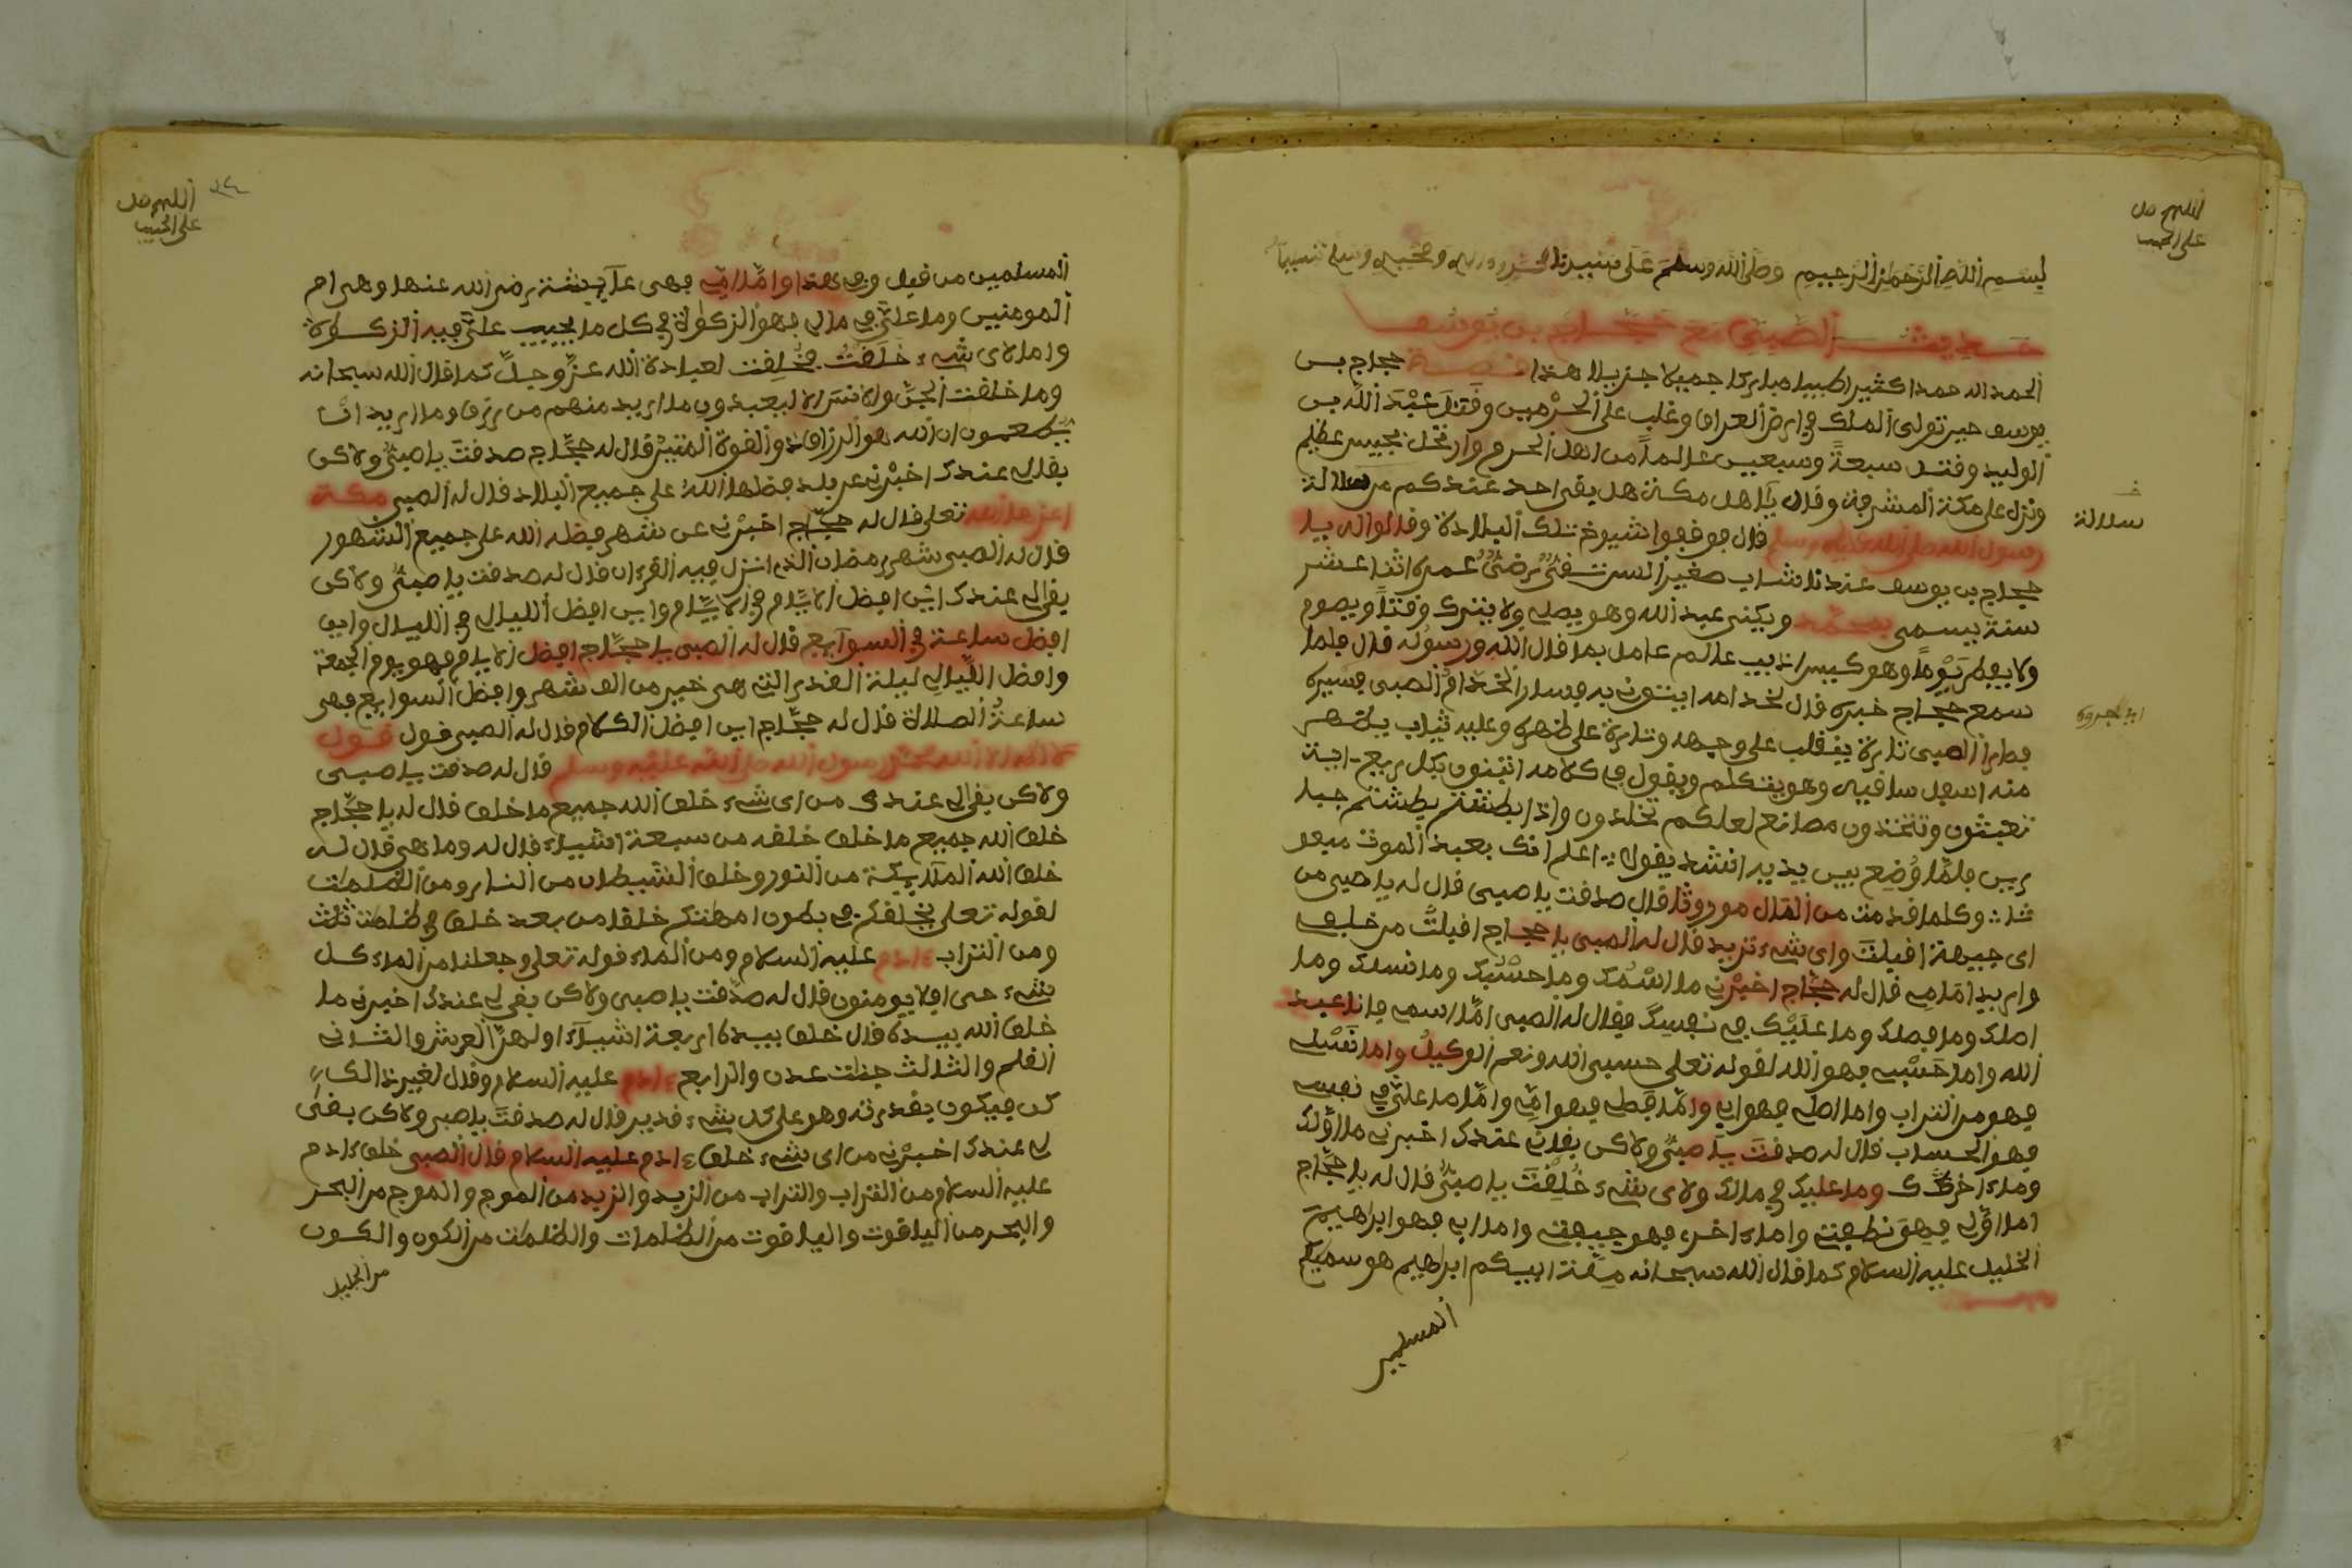 اللهم صل
على الحبيب
بسم الله الرحمن الرحيم وصلى الله وسلم على سيدنا محمد وءاله وصحبه وسلم تسليما
حديث الصبي مع حجاج بن يوسف
الحمد لله حمدا كثيرا طيبا مباركا جميلا جزيلا هذا قصة حجاج بن
يوسف حين تولى الملك في ارض العراق وغلب على الحرمين وقتل عبد الله بن
الوليد وقتل سبعة وسبعين عالما من اهل الحرم وارتحل بجيش عظيم
ونزل على مكة المشرفة وقال يا اهل مكة هل بقي احد عندكم من سلالة
سلالة
رسول الله صلى الله عليه وسلم قال فوقفوا شيوخ تلك البلادة وقالوا له يا
حجاج بن يوسف عندنا شاب صغير السن فتى رضى عمره اثنا عشر
سنة يسمى محمد ويكنى عبد الله وهو يصلي ولا يترك وقتا ويصوم
ولا يفطر يوما وهو كيس اذيب عالم عامل بما قال الله ورسوله قال فلما
سمع حجاج خبره قال لخدامه ايتوني به فسار الخدام الصبي فسيره
فطار الصبي تارة ينقلب على وجهه وتارة على ظهره وعليه ثياب يظهر
منه اسفل ساقيه وهو يتكلم ويقول في كلامه اتبنون بكل ريع ءاية
تعبثون وتتخذون مصانع لعلكم تخلدون واذا بطشتم بطشتم جبا
رين فلما وضع بين يديه انشد يقول اعلم انك بعيد الموت مبعو
ثا وكلما قدمت من المال موروثا قال صدقت يا صبي قال له يا صبي من
اى جيهة اقبلت واى شيء تريد قال له الصبي يا حجاج اقبلت من خلفي
واريد امامي قال له حجاج اخبرني ما اسمك وما حسبك وما نسلك وما
اصلك وما فصلك وما عليك في نفسك فقال له الصبي اما اسمي فانا عبد
الله واما حسبي فهو الله لقوله تعلى حسبي الله ونعم الوكيل واما نسلي
فهو من التراب واما اصلي فهو ابي واما فصلي فهو امي واما ما علي في نفسي
فهو الحساب قال له صدقت يا صبي ولاكن بقاني عندك اخبرني ما اولك
وما ءاخرك وما عليك في مالك ولاى شيء خلقت يا صبي قال له يا حجاج
اما اولي فهو نطفة واما ءاخري فهو جيفة واما ابي فهو ابراهيم
الخليل عليه السلام كما قال الله سبحانه ملة ابيكم ابراهيم هو سميكم
المسلمين
اللهم صل
على الحبيب
المسلمين من قبل وفي هذا واما امي فهي عآيشة رضي الله عنها وهي ام
المومنين وما علي في مالي فهو الزكواة في كل ما يجيب علي فيه الزكواة
واما لاى شيء خلقت فخلقت لعبادة الله عز وجل كما قال الله سبحانه
وما خلقت الجن والانس الا ليعبدون ما اريد منهم من رزق وما اريد ان
يطعمون ان الله هو الرزاق ذو القوة المتين قال له حجاج صدقت يا صبي ولاكن
بقالي عندك اخبرني عن بلد فضلها الله على جميع البلاد قال له الصبي مكة
اعزها الله تعلى قال له حجاج اخبرني عن شهر فضله الله على جميع الشهور
قال له الصبي شهر رمضان الذي انزل فيه القرءان قال له صدقت يا صبي ولاكن
بقالي عندك اين افضل الايام في الايام واين افضل الليالي في الليال واين
افضل ساعة في السوآيع قال له الصبي يا حجاج افضل الايام فهو يوم الجمعة
وافضل الليالي ليلة القدر التي هي خير من الف شهر وافضل السوايع فهي
ساعة الصلاة قال له حجاج اين افضل الكلام قال له الصبي قول قول
لا اله الا الله محمد رسول الله صلى الله عليه وسلم قال له صدقت يا صبي
ولاكن بقالي عندك من اى شيء خلق الله جميع ما خلق قال له يا حجاج
خلق الله جميع ما خلق خلقه من سبعة اشياء قال له وما هي قال له
خلق الله الملآيكة من النور وخلق الشيطان من النار ومن الظلمات
لقوله تعلى يخلقكم في بطون امهتكم خلقا من بعد خلق في ظلمت ثلث
ومن التراب ءادم عليه السلام ومن الماء قوله تعلى وجعلنا من الماء كل
شيء حي افلا يومنون قال له صدقت يا صبي ولاكن بقي لي عندك اخبرني ما
خلق الله بيده قال خلق بيده اربعة اشيآء اولهن العرش والثاني
القلم والثالث جنات عدن والرابع ءادم عليه السلام وقال لغير ذالك
كن فيكون بقدرته وهو على كل شيء قدير قال له صدقت يا صبي ولاكن بقى
لي عندك اخبرني من اى شيء خلق ءادم عليه السلام قال الصبي خلق ءادم
عليه السلام من التراب والتراب من الزبد والزبد من الموج والموج من البحر
والبحر من الياقوت والياقوت من الظلمات والظلمات من الكون والكون
من الجليل